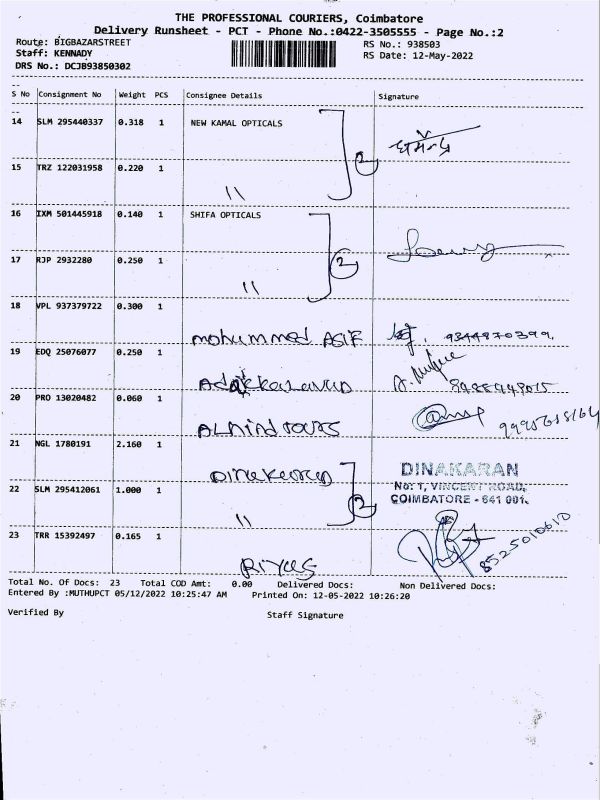 THE PROFESSIONAL COURIERS, Coimbatore
Delivery Runsheet - PCT - Phone No.:0422-3505555 - Page No.:2
Route: BIGBAZARSTREET
RS No.: 938503
Staff: KENNADY
RS Date: 12-May-2022
DRS No.: DCJ893850302
S No Consignment No Weight PCS Consignee Details Signature
14 SLM 295440337 0.318 1 NEW KAMAL OPTICALS
2
15 TRZ 122031958 0.220 1 "
16 IXM 501445918 0.140 1 SHIFA OPTICALS
2
17 RJP 2932280 0.250 1 "
18 VPL 937379722 0.300 1 mohummed ASIF
19 EDQ 25076077 0.250 1
20 PRO 13020482 0.060 1
21 NGL 1780191 2.160 1 Dinakaran
DINAKARAN
No: 1, VINCENT ROAD,
COIMBATORE - 641 001.
22 SLM 295412061 1.000 1 "
2
23 TRR 15392497 0.165 1 Riyas 8525010610
Total No. Of Docs: 23 Total COD Amt: 0.00 Delivered Docs: Non Delivered Docs:
Entered By :MUTHUPCT 05/12/2022 10:25:47 AM Printed On: 12-05-2022 10:26:20
Verified By Staff Signature